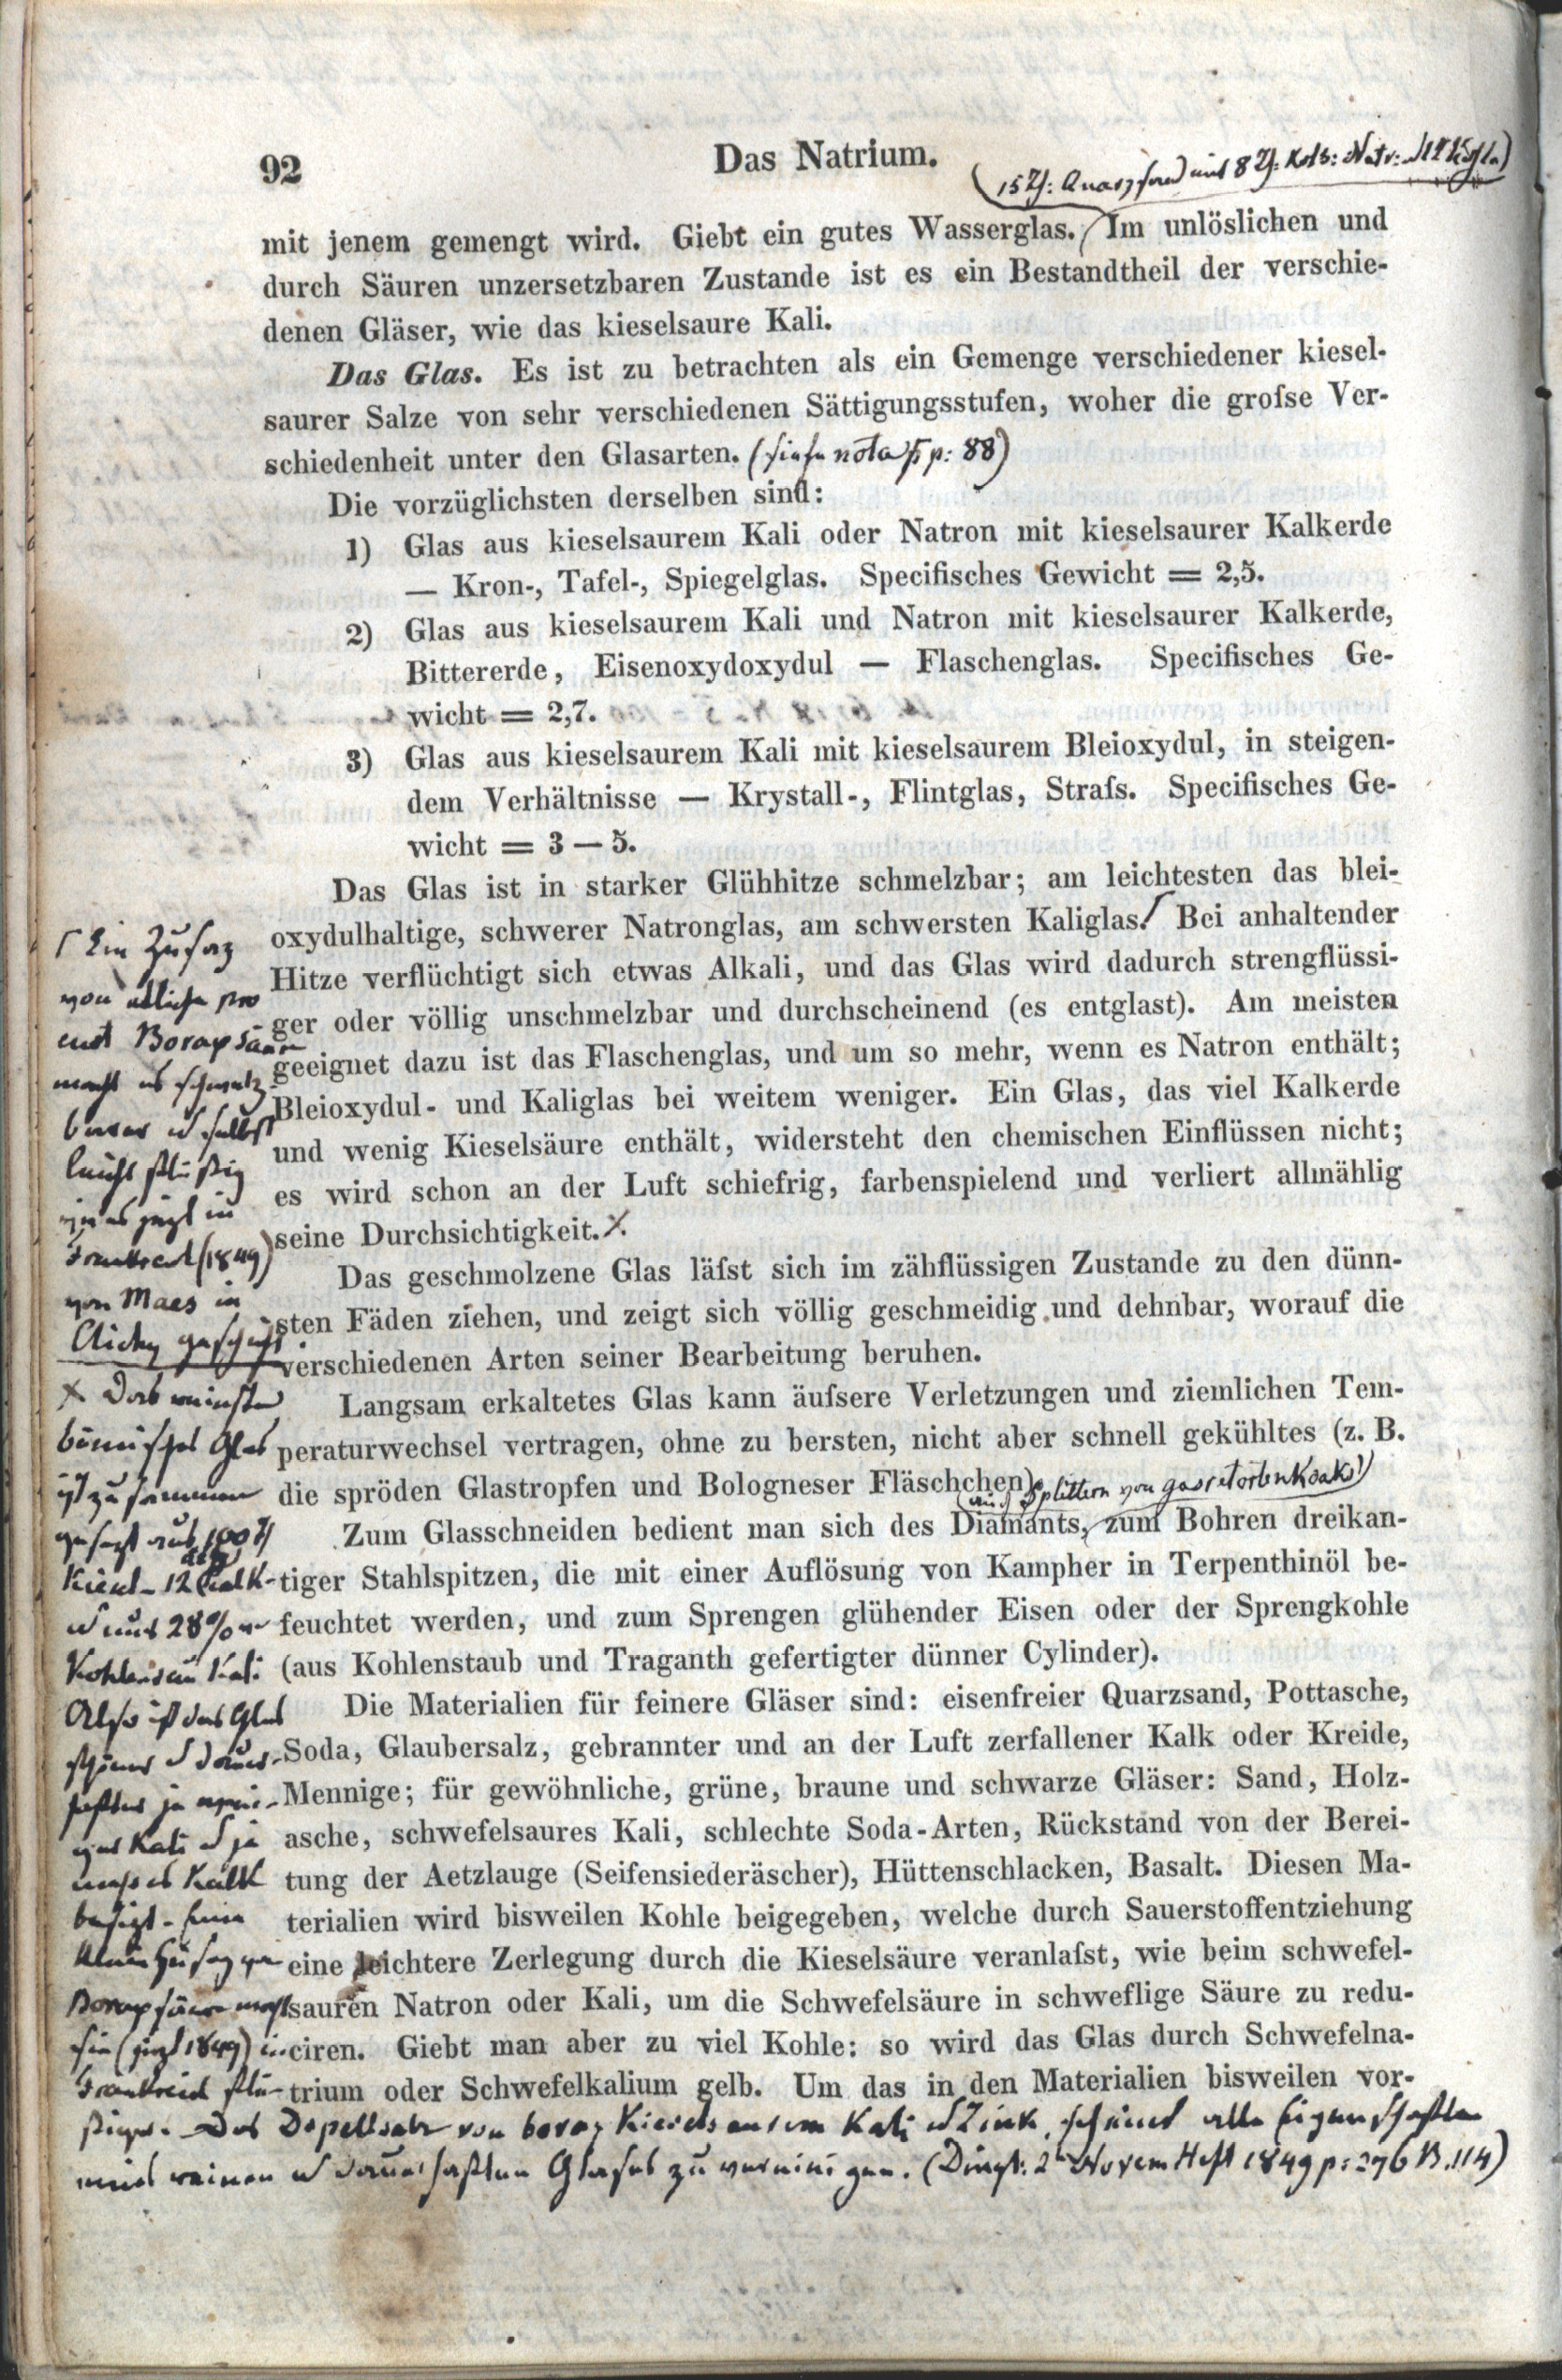 92
Das Natrium.
(15 Th: Quarzsand mit 8 Th: Kohls: Natr: 1 Th Kohle)
mit jenem gemengt wird. Giebt ein gutes Wasserglas. Im unlöslichen und
durch Säuren unzersetzbaren Zustande ist es ein Bestandtheil der verschie-
denen Gläser, wie das kieselsaure Kali.
Das Glas. Es ist zu betrachten als ein Gemenge verschiedener kiesel-
saurer Salze von sehr verschiedenen Sättigungsstufen, woher die groſse Ver-
schiedenheit unter den Glasarten. (siehe nota p: 88)
Die vorzüglichsten derselben sind:
1) Glas aus kieselsaurem Kali oder Natron mit kieselsaurer Kalkerde
— Kron-, Tafel-, Spiegelglas. Specifisches Gewicht = 2,5.
2) Glas aus kieselsaurem Kali und Natron mit kieselsaurer Kalkerde,
Bittererde, Eisenoxydoxydul — Flaschenglas. Specifisches Ge-
wicht = 2,7.
3) Glas aus kieselsaurem Kali mit kieselsaurem Bleioxydul, in steigen-
dem Verhältnisse — Krystall-, Flintglas, Straſs. Specifisches Ge-
wicht = 3 — 5.
Das Glas ist in starker Glühhitze schmelzbar; am leichtesten das blei-
oxydulhaltige, schwerer Natronglas, am schwersten Kaliglas. Bei anhaltender
Hitze verflüchtigt sich etwas Alkali, und das Glas wird dadurch strengflüssi-
ger oder völlig unschmelzbar und durchscheinend (es entglast). Am meisten
geeignet dazu ist das Flaschenglas, und um so mehr, wenn es Natron enthält;
Bleioxydul- und Kaliglas bei weitem weniger. Ein Glas, das viel Kalkerde
und wenig Kieselsäure enthält, widersteht den chemischen Einflüssen nicht;
es wird schon an der Luft schiefrig, farbenspielend und verliert allmählig
seine Durchsichtigkeit. X.
Das geschmolzene Glas läſst sich im zähflüssigen Zustande zu den dünn-
sten Fäden ziehen, und zeigt sich völlig geschmeidig und dehnbar, worauf die
verschiedenen Arten seiner Bearbeitung beruhen.
Langsam erkaltetes Glas kann äuſsere Verletzungen und ziemlichen Tem-
peraturwechsel vertragen, ohne zu bersten, nicht aber schnell gekühltes (z. B.
die spröden Glastropfen und Bologneser Fläschchen).
(auch Splittern von gasretortenkoaks)
Zum Glasschneiden bedient man sich des Diamants, zum Bohren dreikan-
tiger Stahlspitzen, die mit einer Auflösung von Kampher in Terpenthinöl be-
feuchtet werden, und zum Sprengen glühender Eisen oder der Sprengkohle
(aus Kohlenstaub und Traganth gefertigter dünner Cylinder).
Die Materialien für feinere Gläser sind: eisenfreier Quarzsand, Pottasche,
Soda, Glaubersalz, gebrannter und an der Luft zerfallener Kalk oder Kreide,
Mennige; für gewöhnliche, grüne, braune und schwarze Gläser: Sand, Holz-
asche, schwefelsaures Kali, schlechte Soda-Arten, Rückstand von der Berei-
tung der Aetzlauge (Seifensiederäscher), Hüttenschlacken, Basalt. Diesen Ma-
terialien wird bisweilen Kohle beigegeben, welche durch Sauerstoffentziehung
eine leichtere Zerlegung durch die Kieselsäure veranlaſst, wie beim schwefel-
sauren Natron oder Kali, um die Schwefelsäure in schweflige Säure zu redu-
ciren. Giebt man aber zu viel Kohle: so wird das Glas durch Schwefelna-
trium oder Schwefelkalium gelb. Um das in den Materialien bisweilen vor-
Ein Zusaz
von etliche pro
cent Boraxsäure
macht es schmelz-
barer u selbst
leicht flüßig
wie es jezt in
Frankreich (1849)
von Maes in
Clichy geschieht
X Das reinste
bömisches Glas
ist zusammen
gesezt aus 100 Th
Kiesel- 12 Kalk-
u mit 28%
Kohlensaur Kali
Also ist das Glas
schöner u dauer-
hafter je weni-
ger Kali u je
mehr es Kalk
besizt. Ein
klein Zusaz von
Boraxsäure macht
sie (jezt 1849) in
Frankreich flü-
ßiger. Das Dopellsalz von borax Kieselsaurem Kali u Zink, scheint alle Eigenschaften
eines reinen u dauerhaften Glases zu vereinigen. (Dingl: 2 Novem Heft 1849 p: 276 B. 114)